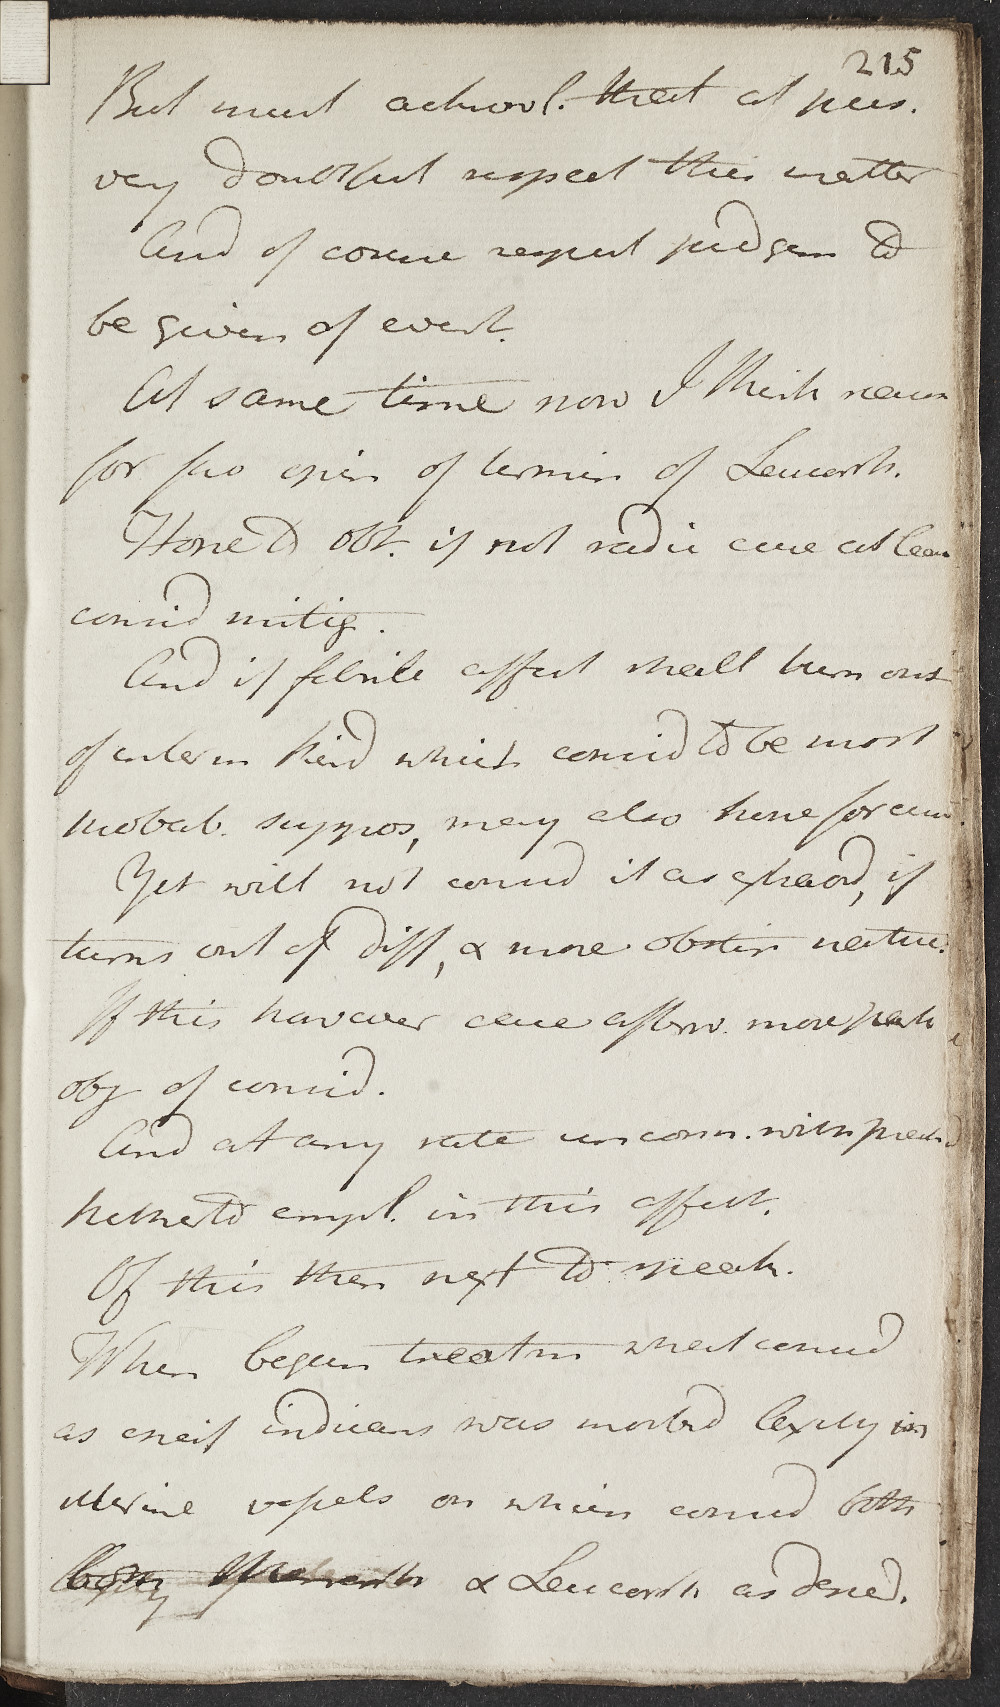 215
But must acknowl. that at pres.
very doubtful respect this matter
And of course respect judgem to
be given of event.
At same time now I think reason
for fav opin of termin of Leucorrh.
Hope to obt. if not radic cure at least
consid mitig.
And if febrile affect shall turn out
of interm kind which consid to be most
probab. suppos, may also hope for cure.
Yet will not consid it as extraord, if
turns out of diff, & more obstin nature.
If this however case afterw. more part
obj of consid.
And at any rate unconn. with pract
hitherto empl. in this affect.
Of this then next to speak.
When begun treatm what consid
as chief indicans was morbid laxity in
uterine vessels on which consid both
& Leucorrh as depend.